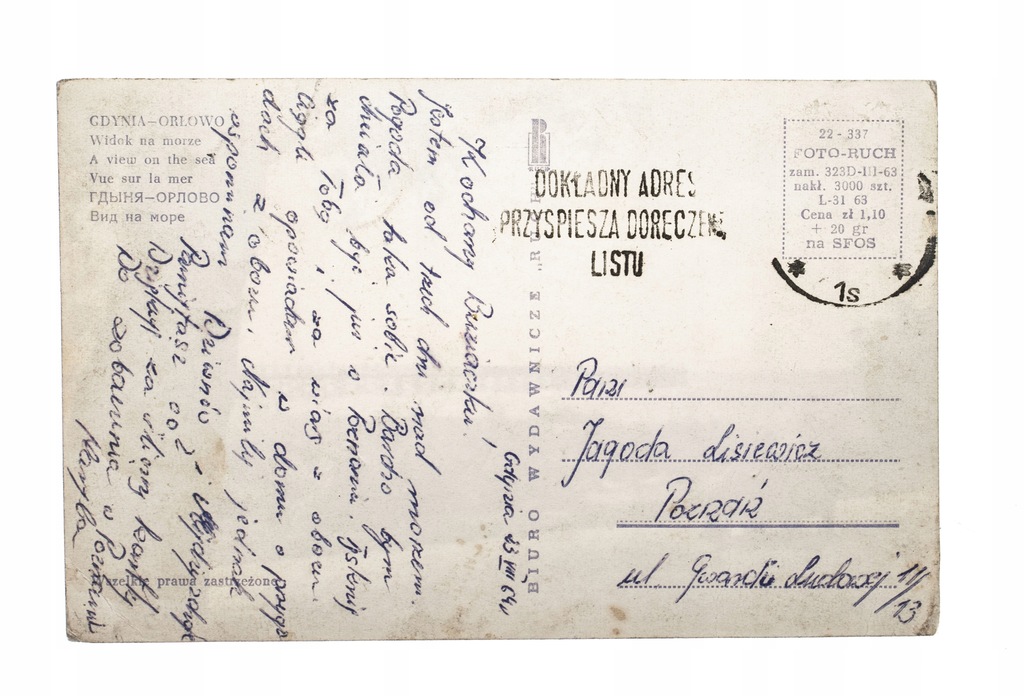 GDYNIA—ORŁOWO
Widok na morze
A view on the sea
Vue sur la mer
ГДЫНЯ—ОРЛОВО
Вид на море
Gdynia 23 VIII 64
Kochany Buziaczku!
Jestem od trzech dni nad morzem.
Pogoda taka sobie. Bardzo bym
chciała być już w Poznaniu. Tęsknię
za Tobą i za
opowiadam w domu o
z obozu. Najmilej jednak
wspominam Dziwnów
Pamiętasz
Dziękuję za
Do zobaczenia w Poznaniu
Wszelkie prawa zastrzeżone
BIURO WYDAWNICZE „RUCH"
DOKŁADNY ADRES
PRZYSPIESZA DORĘCZENIE
LISTU
22-337
FOTO-RUCH
zam. 323D-III-63
nakł. 3000 szt.
L-31 63
Cena zł 1,10
+ 20 gr
na SFOS
1s
Pani
Jagoda Lisiewicz
Poznań
ul. Gwardii Ludowej 11/
13